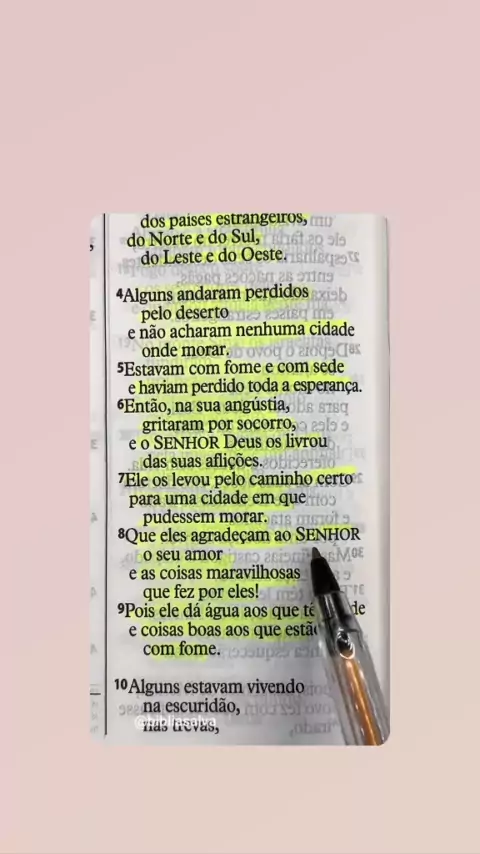 dos países estrangeiros,
do Norte e do Sul,
do Leste e do Oeste.
4Alguns andaram perdidos
pelo deserto
e não acharam nenhuma cidade
onde morar.
5Estavam com fome e com sede
e haviam perdido toda a esperança.
6Então, na sua angústia,
gritaram por socorro,
e o SENHOR Deus os livrou
das suas aflições.
7Ele os levou pelo caminho certo
para uma cidade em que
pudessem morar.
8Que eles agradeçam ao SENHOR
o seu amor
e as coisas maravilhosas
que fez por eles!
9Pois ele dá água aos que de
e coisas boas aos que
com fome.
10Alguns estavam vivendo
na escuridão,
nas trevas,
@bibliasalva